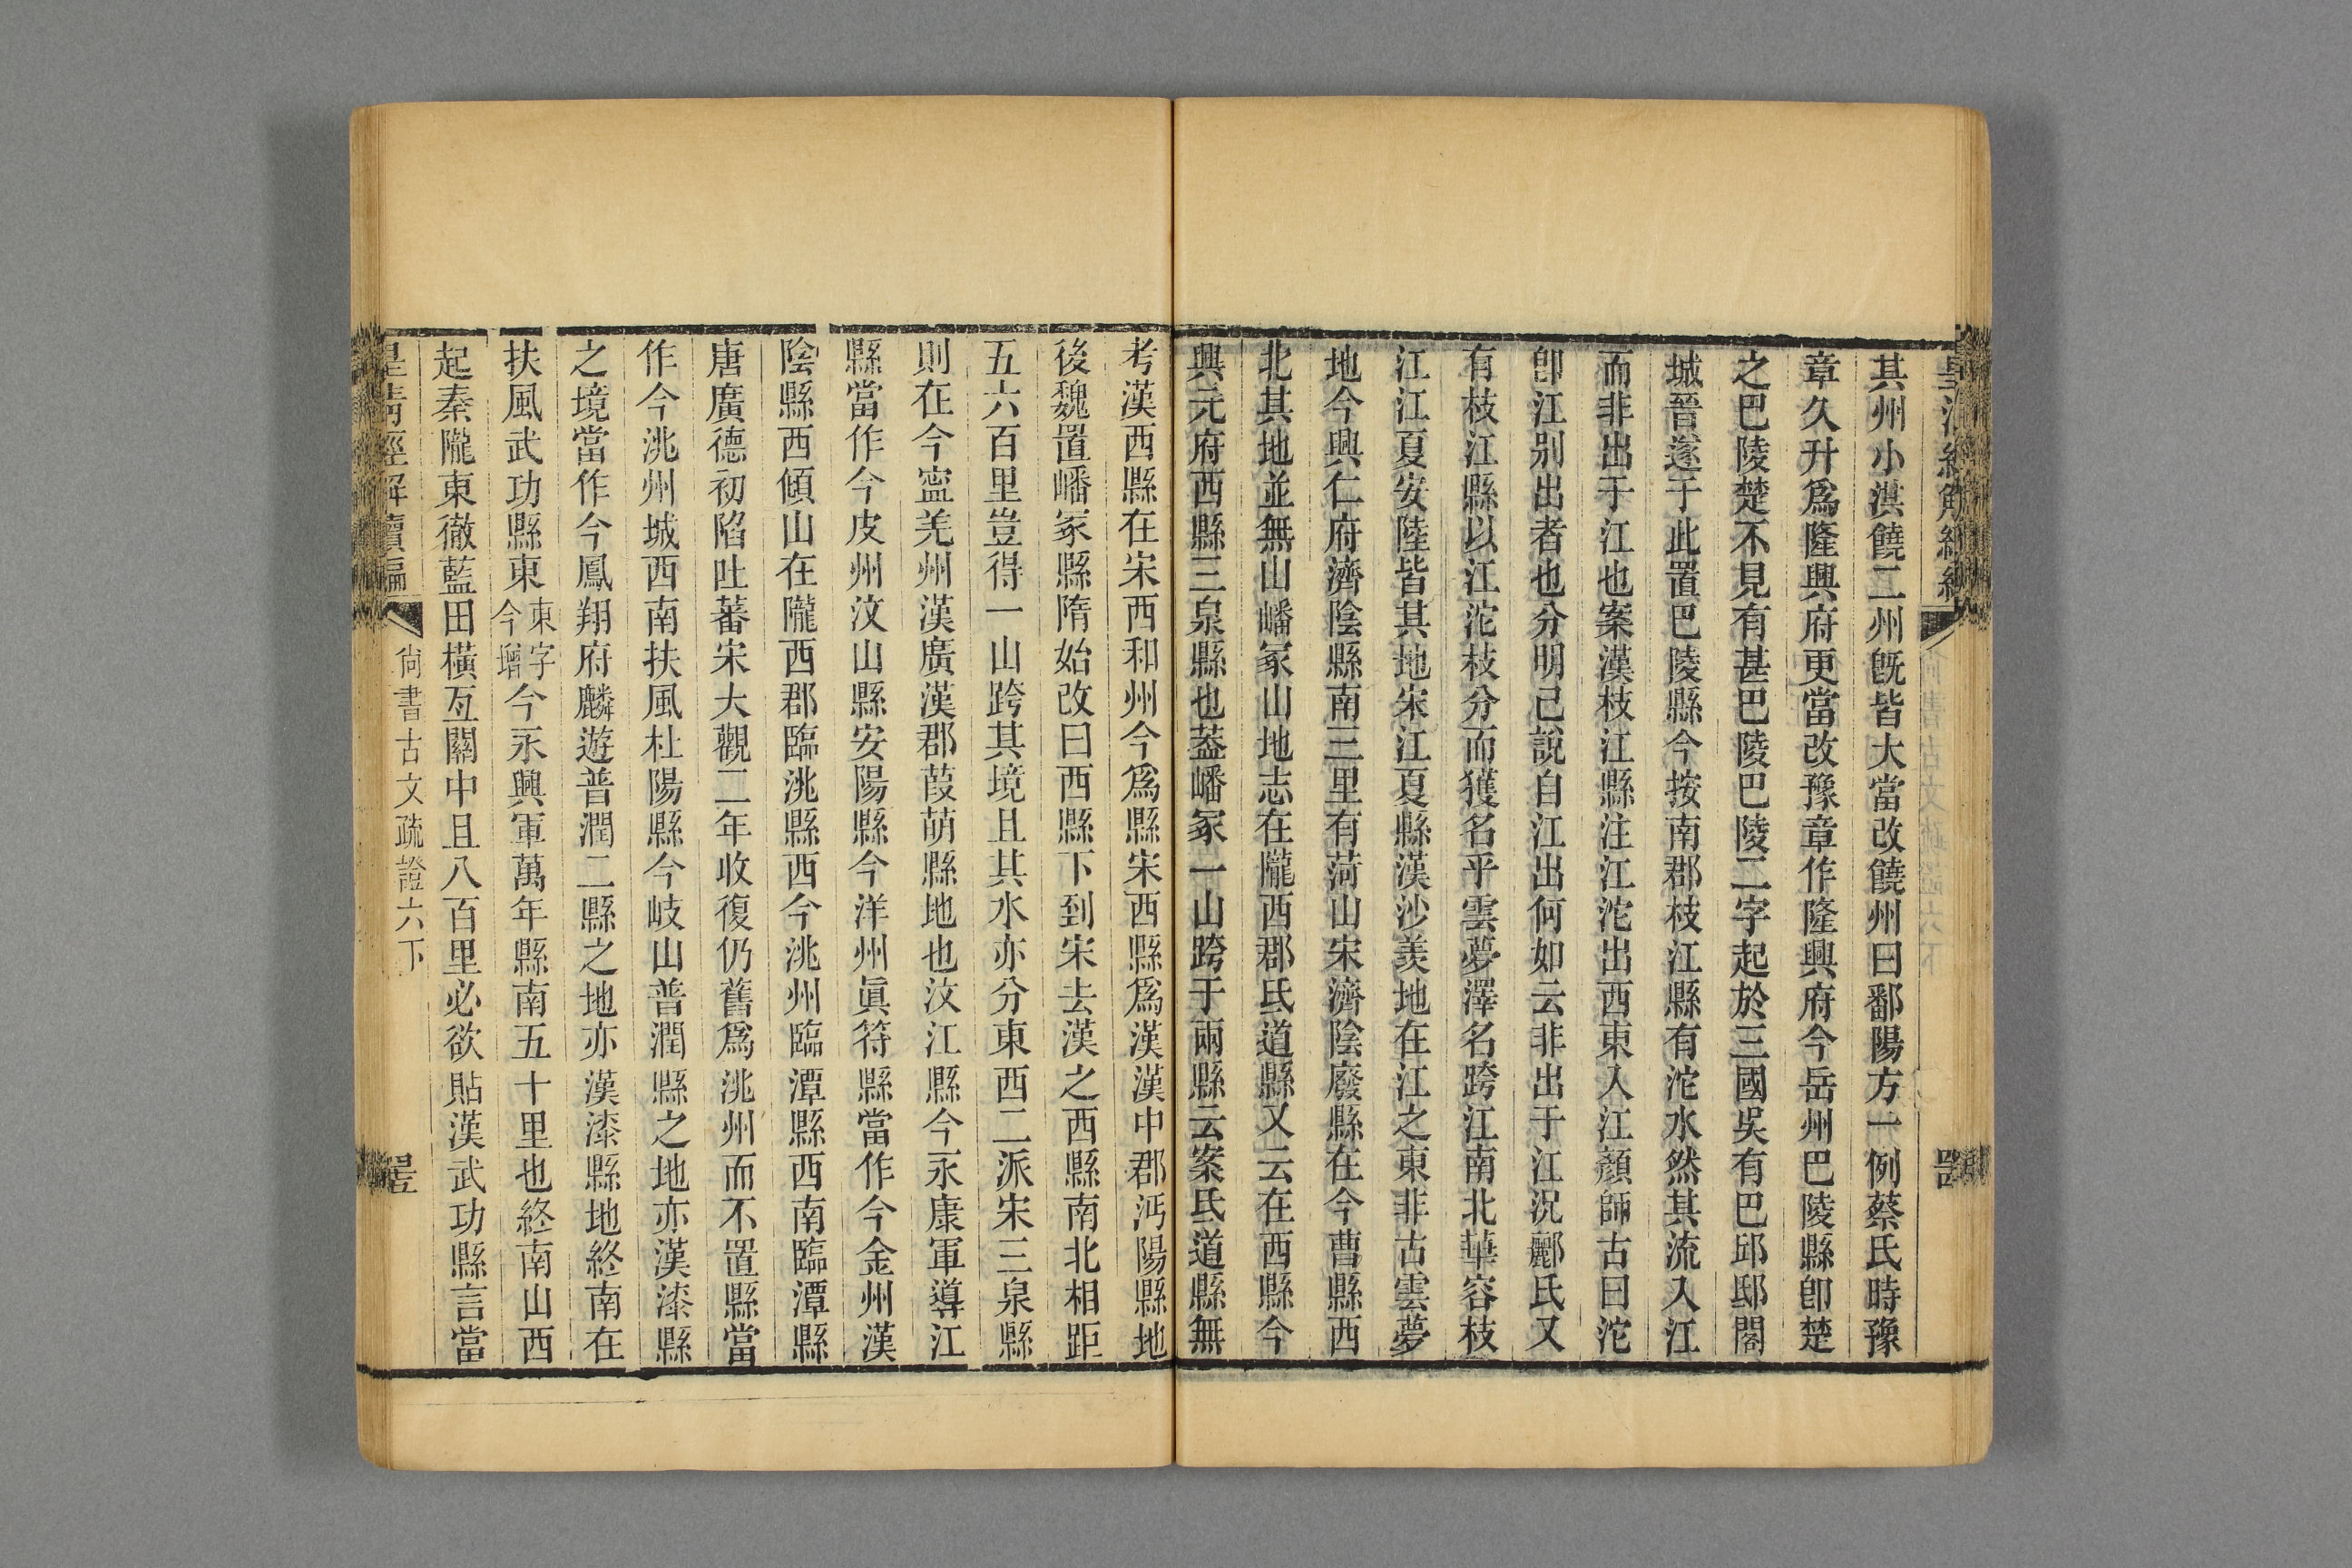 其州小淇饒二州旣皆大當改饒州曰鄱陽方一例蔡氏時豫
章久升爲隆興府更當改豫章作隆興府今岳州巴陵縣卽楚
之巴陵楚不見有甚巴陵巴陵二字起於三國吳有巴邱邸閣
城晉遂于此置巴陵縣今按南郡枝江縣有沱水然其流入江
而非出于江也案漢枝江縣注江沱出西東入江顏師古曰沱
卽江别出者也分明已說自江出何如云非出于江況酈氏又
有枝江縣以江沱枝分而獲名乎雲夢澤名跨江南北華容枝
江江夏安陸皆其地宋江夏縣漢沙羨地在江之東非古雲夢
地今興仁府濟陰縣南三里有菏山宋濟陰廢縣在今曹縣西
北其地並無山嶓冢山地志在隴西郡氐道縣又云在西縣今
興元府西縣三泉縣也葢嶓冢一山跨于兩縣云案氐道縣無
考漢西縣在宋西和州今爲縣宋西縣爲漢漢中郡沔陽縣地
後魏置嶓冢縣隋始改曰西縣下到宋去漢之西縣南北相距
五六百里豈得一山跨其境且其水亦分東西二派宋三泉縣
則在今寧羌州漢廣漢郡葭萌縣地也汶江縣今永康軍導江
縣當作今皮州汶山縣安陽縣今洋州眞符縣當作今金州漢
陰縣西傾山在隴西郡臨洮縣西今洮州臨潭縣西南臨潭縣
唐廣德初陷吐蕃宋大觀二年收復仍舊爲洮州而不置縣當
作今洮州城西南扶風杜陽縣今岐山普潤縣之地亦漢漆縣
之境當作今鳳翔府麟遊普潤二縣之地亦漢漆縣地終南在
扶風武功縣東東字今增今永興軍萬年縣南五十里也終南山西
起秦隴東徹藍田橫亙關中且八百里必欲貼漢武功縣言當
皇清經解續編 尙書古文疏證六下